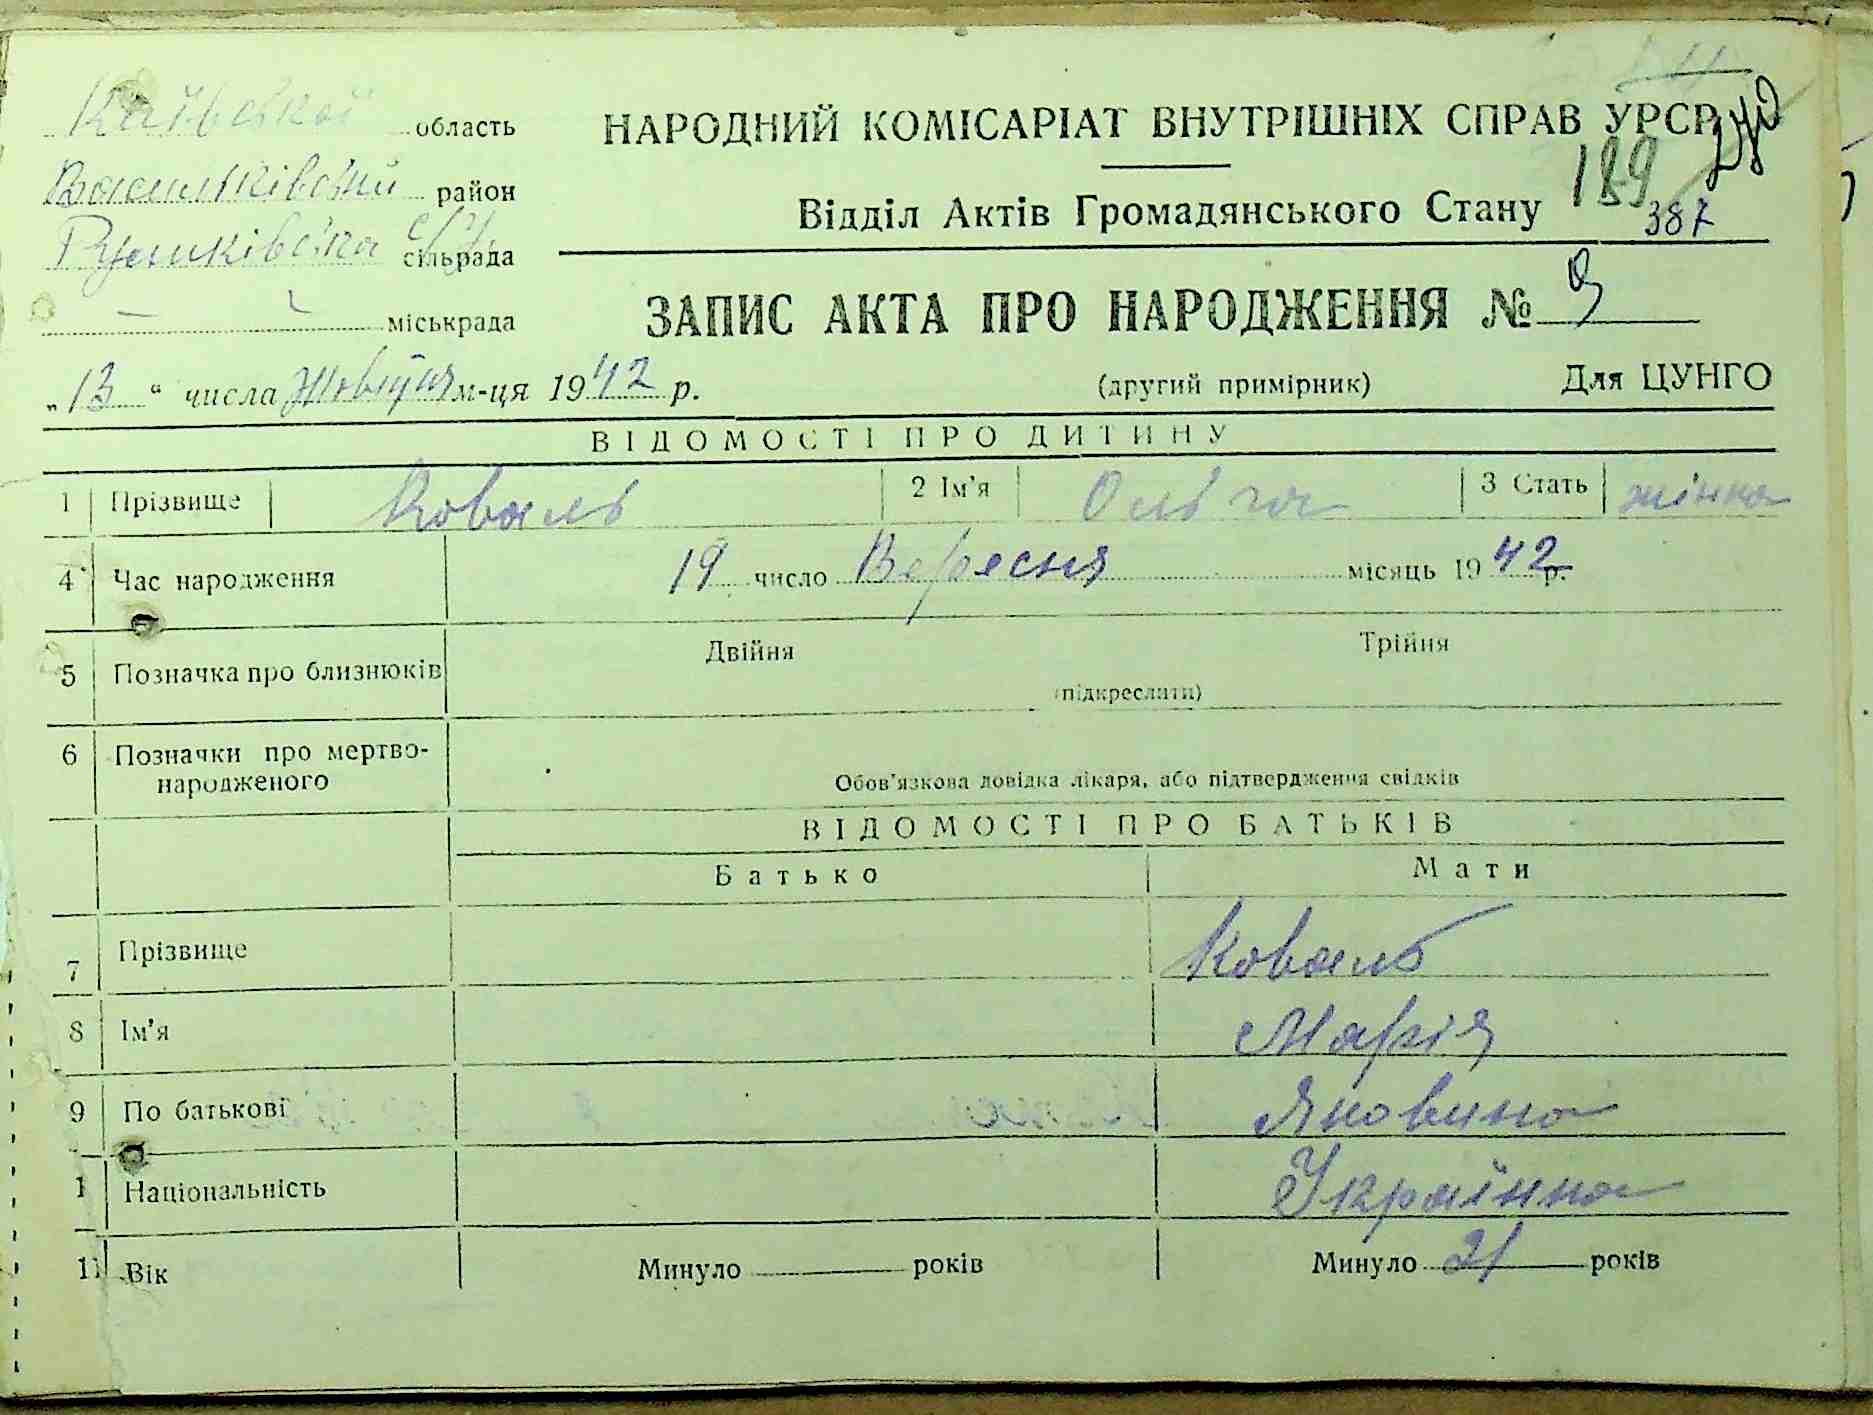 Київської область
Васильківський район
сільрада
міськрада
НАРОДНИЙ КОМІСАРІАТ ВНУТРІШНІХ СПРАВ УРСР
Відділ Актів Громадянського Стану
189
387
ЗАПИС АКТА ПРО НАРОДЖЕННЯ № 9
„13“ числа Жовтня м-ця 1942 р.
(другий примірник)
Для ЦУНГО
ВІДОМОСТІ ПРО ДИТИНУ
1 Прізвище Коваль 2 Ім'я Ольга 3 Стать жінка
4 Час народження 19 число Вересня місяць 1942 р.
5 Позначка про близнюків Двійня Трійня
(підкреслити)
6 Позначки про мертво-
народженого
Обов'язкова довідка лікаря, або підтвердження свідків
ВІДОМОСТІ ПРО БАТЬКІВ
Батько Мати
7 Прізвище Коваль
8 Ім'я Марія
9 По батькові
1 Національність Українка
11 Вік Минуло років Минуло 21 років